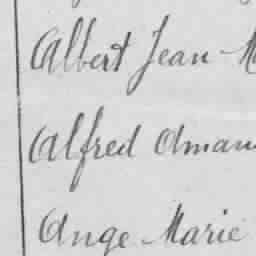 Albert Jean M
Alfred Aman
Ange Marie